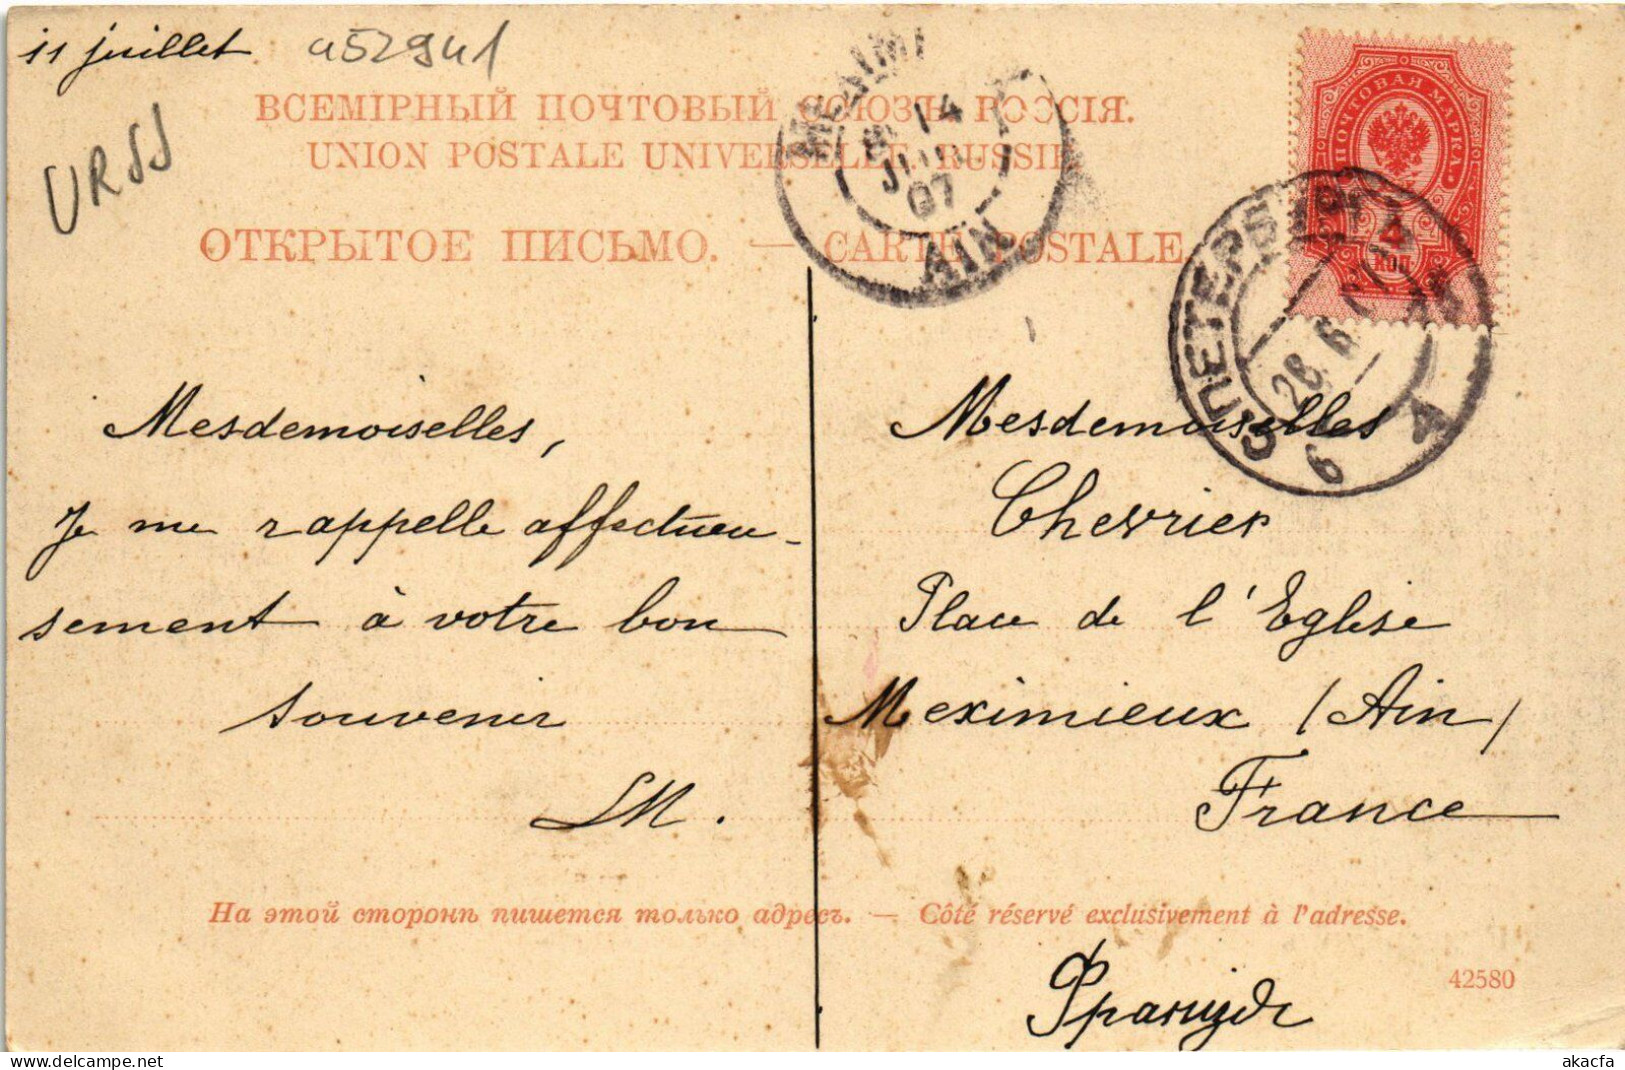 11 juillet
452941
URSS
ВСЕМІРНЫЙ ПОЧТОВЫЙ СОЮЗЪ. РОССІЯ.
UNION POSTALE UNIVERSELLE. RUSSIE
ОТКРЫТОЕ ПИСЬМО. — CARTE POSTALE.
14
07
AIN
ПОЧТОВАЯ МАРКА.
4
КОП.
С.ПЕТЕРБУРГ
28 6
6
Mesdemoiselles,
Je me rappelle affectueu-
sement à votre bon
souvenir
LM.
Mesdemoiselles
Chevrier
Place de l'Eglise
Meximieux (Ain)
France
На этой сторонѣ пишется только адресъ. — Côté réservé exclusivement à l'adresse.
42580
akacfa